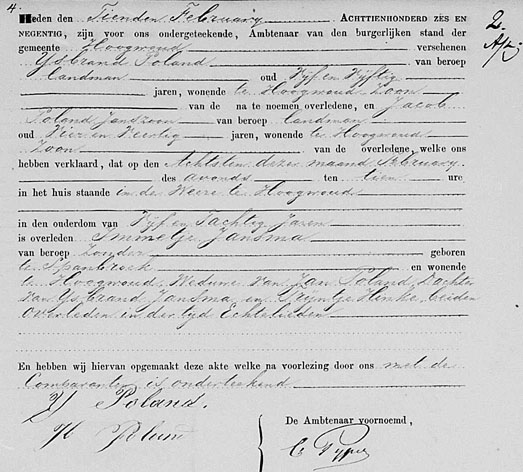 4.
Heden den Tienden February ACHTTIENHONDERD ZES EN
NEGENTIG, zijn voor ons ondergeteekende, Ambtenaar van den burgerlijken stand der
gemeente Hoogwoud verschenen
Ysbrand Poland van beroep
landman oud Vijf en Vijftig
jaren, wonende te Hoogwoud Zoon
van de na te noemen overledene, en Jacob
Poland Janszoon van beroep landman
oud Vier en Veertig jaren, wonende te Hoogwoud
Zoon van de overledene, welke ons
hebben verklaard, dat op den Achtsten dezer maand February
des avonds ten tien ure
in het huis staande in de Weere te Hoogwoud
in den ouderdom van Vijf en Tachtig Jaren
is overleden Immetje Jansma
van beroep zonder geboren
te Spanbroek en wonende
te Hoogwoud, Weduwe van Jan Poland, Dochter
van Ysbrand Jansma en Trijntje beiden
overleden in der tijd Echtelieden
En hebben wij hiervan opgemaakt deze akte welke na voorlezing door ons met de
Comparanten is onderteekend
Y Poland.
De Ambtenaar voornoemd,
2